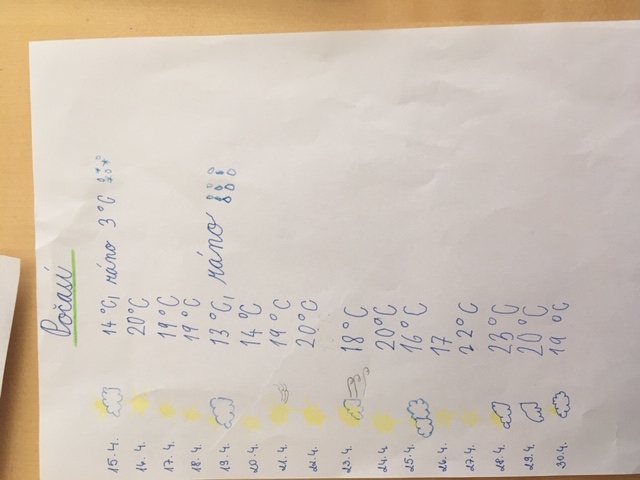 Počasí
15.4. 14 °C, ráno 3 °C
16.4. 20°C
17.4. 19°C
18.4. 19°C
19.4. 13°C, ráno
20.4. 14°C
21.4. 19°C
22.4. 20°C
23.4. 18°C
24.4. 20°C
25.4. 16°C
26.4. 17
27.4. 22°C
28.4. 23°C
29.4. 20°C
30.4. 19°C